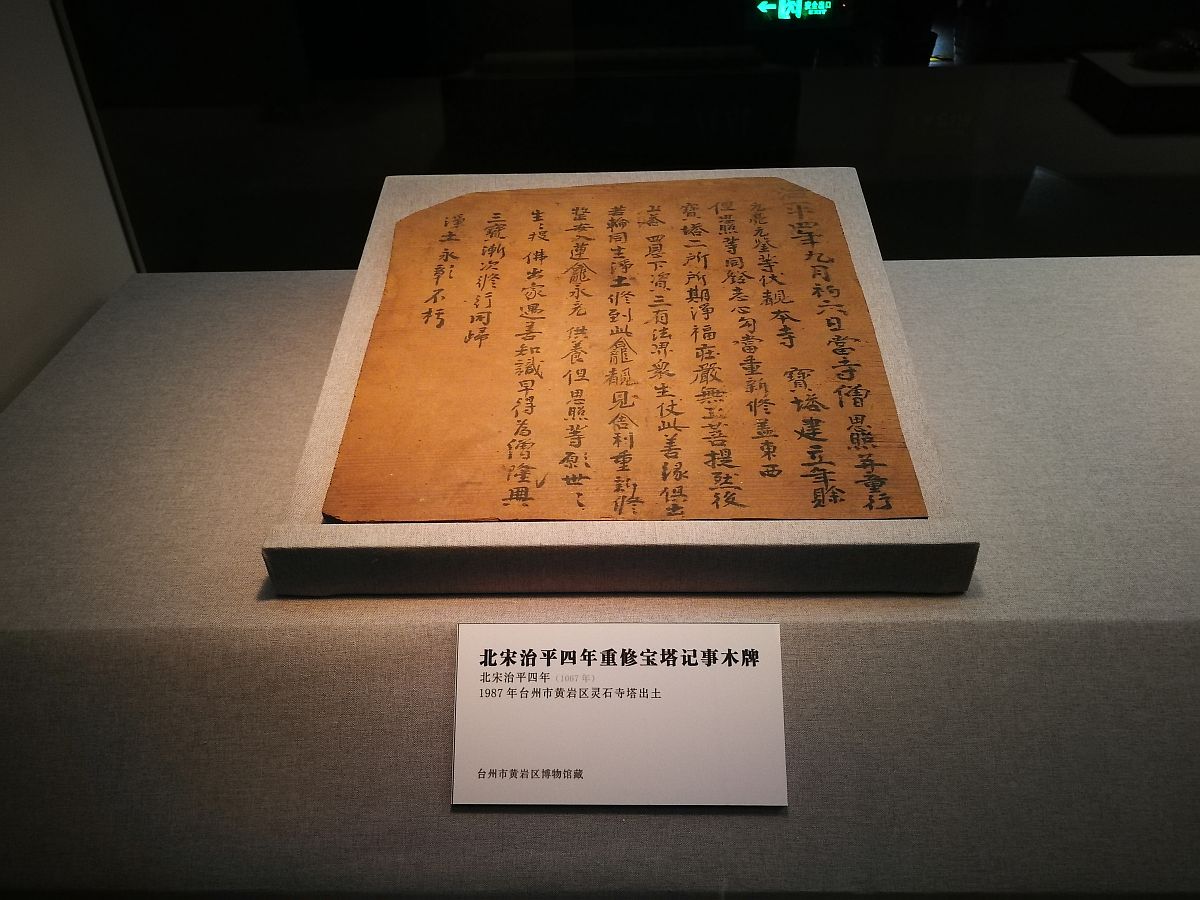 安全出口
平四年九月初六日當寺僧思照并童行
元亮元鉴等伏覩本寺 寶塔建立年賒
但思照等同發志心勾當重新修蓋東西
寶塔二所所期淨福莊嚴無上菩提然後
上答四恩下資三有法界衆生仗此善缘俱出
苦輪同生淨土修到此龕覩見舍利重新修
整安入蓮龕永充供養但思照等願世〻
生〻投佛出家遇善知識早得為僧隆興
三寶漸次修行同歸
淨土永彰不朽
北宋治平四年重修宝塔记事木牌
北宋治平四年（1067 年）
1987 年台州市黄岩区灵石寺塔出土
台州市黄岩区博物馆藏